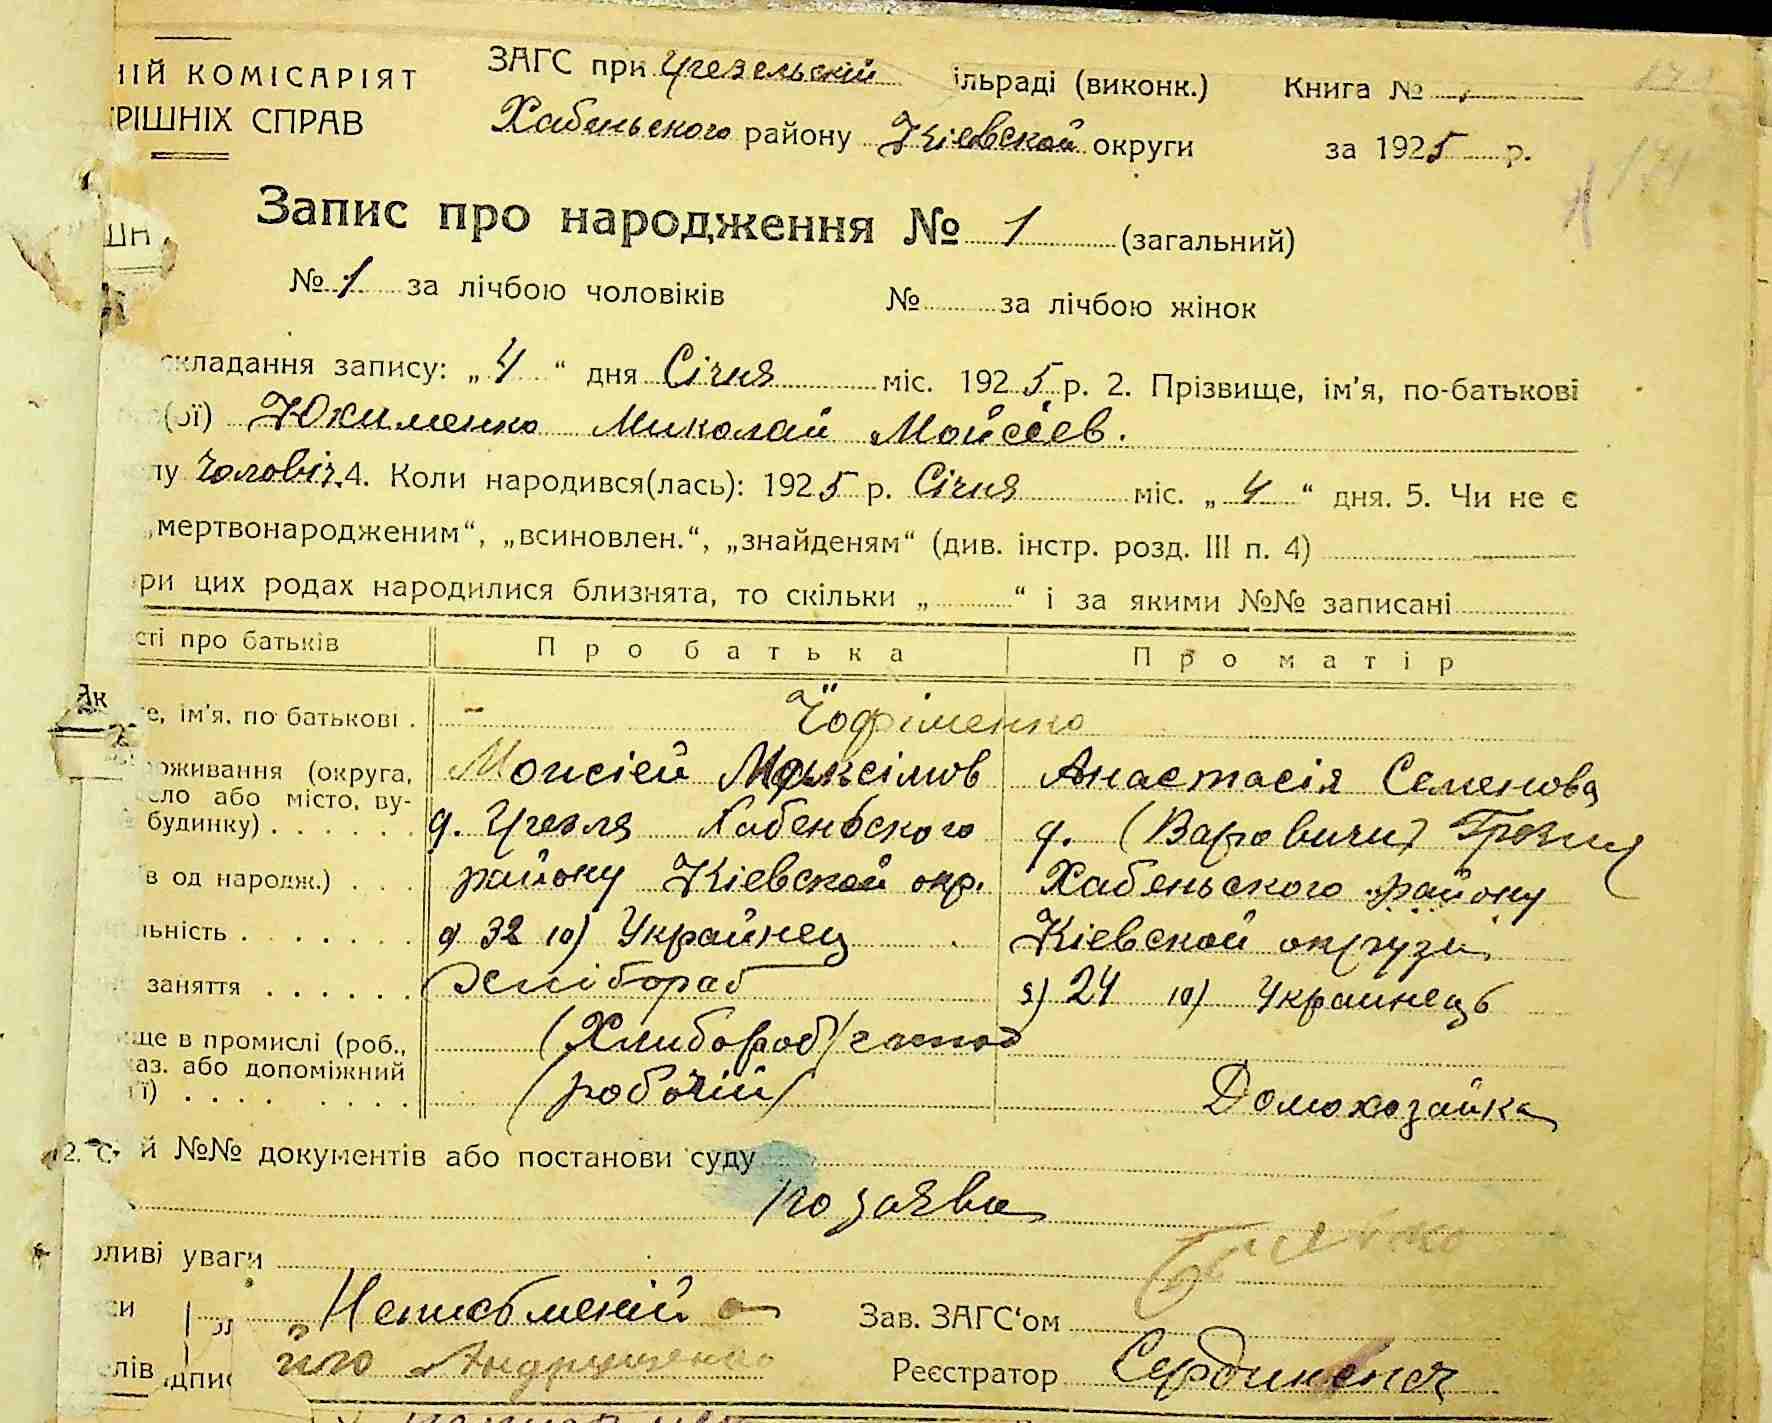 НІЙ КОМІСАРІЯТ
ТРІШНІХ СПРАВ
ЗАГС при Грезельскій ільраді (виконк.) Книга №
Хабеньского району Кіевской округи за 1925 р.
171
Запис про народження № 1 (загальний)
№ 1 за лічбою чоловіків № за лічбою жінок
складання запису: „4“ дня Січня міс. 1925 р. 2. Прізвище, ім'я, по-батькові
(ої) Юхименко Миколай Мойсеев.
лу чоловіч. 4. Коли народився(лась): 1925 р. Січня міс. „4“ дня. 5. Чи не є
„мертвонародженим“, „всиновлен.“, „знайденям“ (див. інстр. розд. III п. 4)
ри цих родах народилися близнята, то скільки „ “ і за якими №№ записані
сті про батьків Про батька Про матір
е, ім'я, по батькові .
Моисіей Максімов Анастасія Семенова
оживання (округа,
ело або місто, ву-
будинку) . . . . . . д. Грезля Хабеньского д. (Варовичи) Грезля
в од народж.) . . . району Кіевской окр. Хабеньского району
льність . . . . . . . 9) 32 10) Украйнец Кіевской округи
заняття . . . . . . Хлібораб 9) 24 10) Украинець
ще в промислі (роб., (Хлибороб)
аз. або допоміжний
ії) . . . . . . . . (робочій) Домохозайка
12. С й №№ документів або постанови суду
по заяве
оливі уваги
си Неписбменій а Зав. ЗАГС'ом
лів дпис його Андрущенко Реєстратор